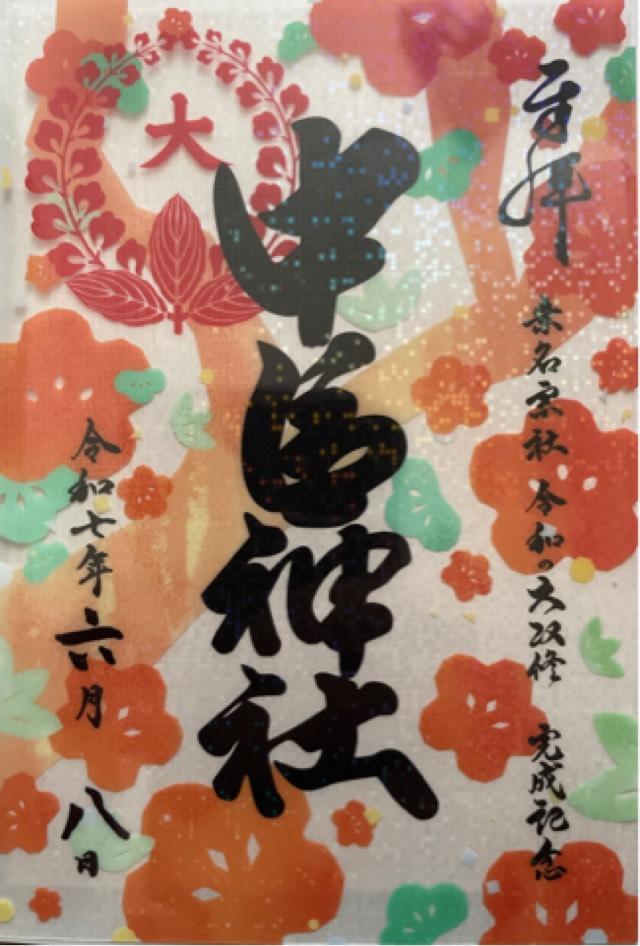 奉拝
桑名宗社 令和の大改修 完成記念
大
中臣神社
令和七年六月八日